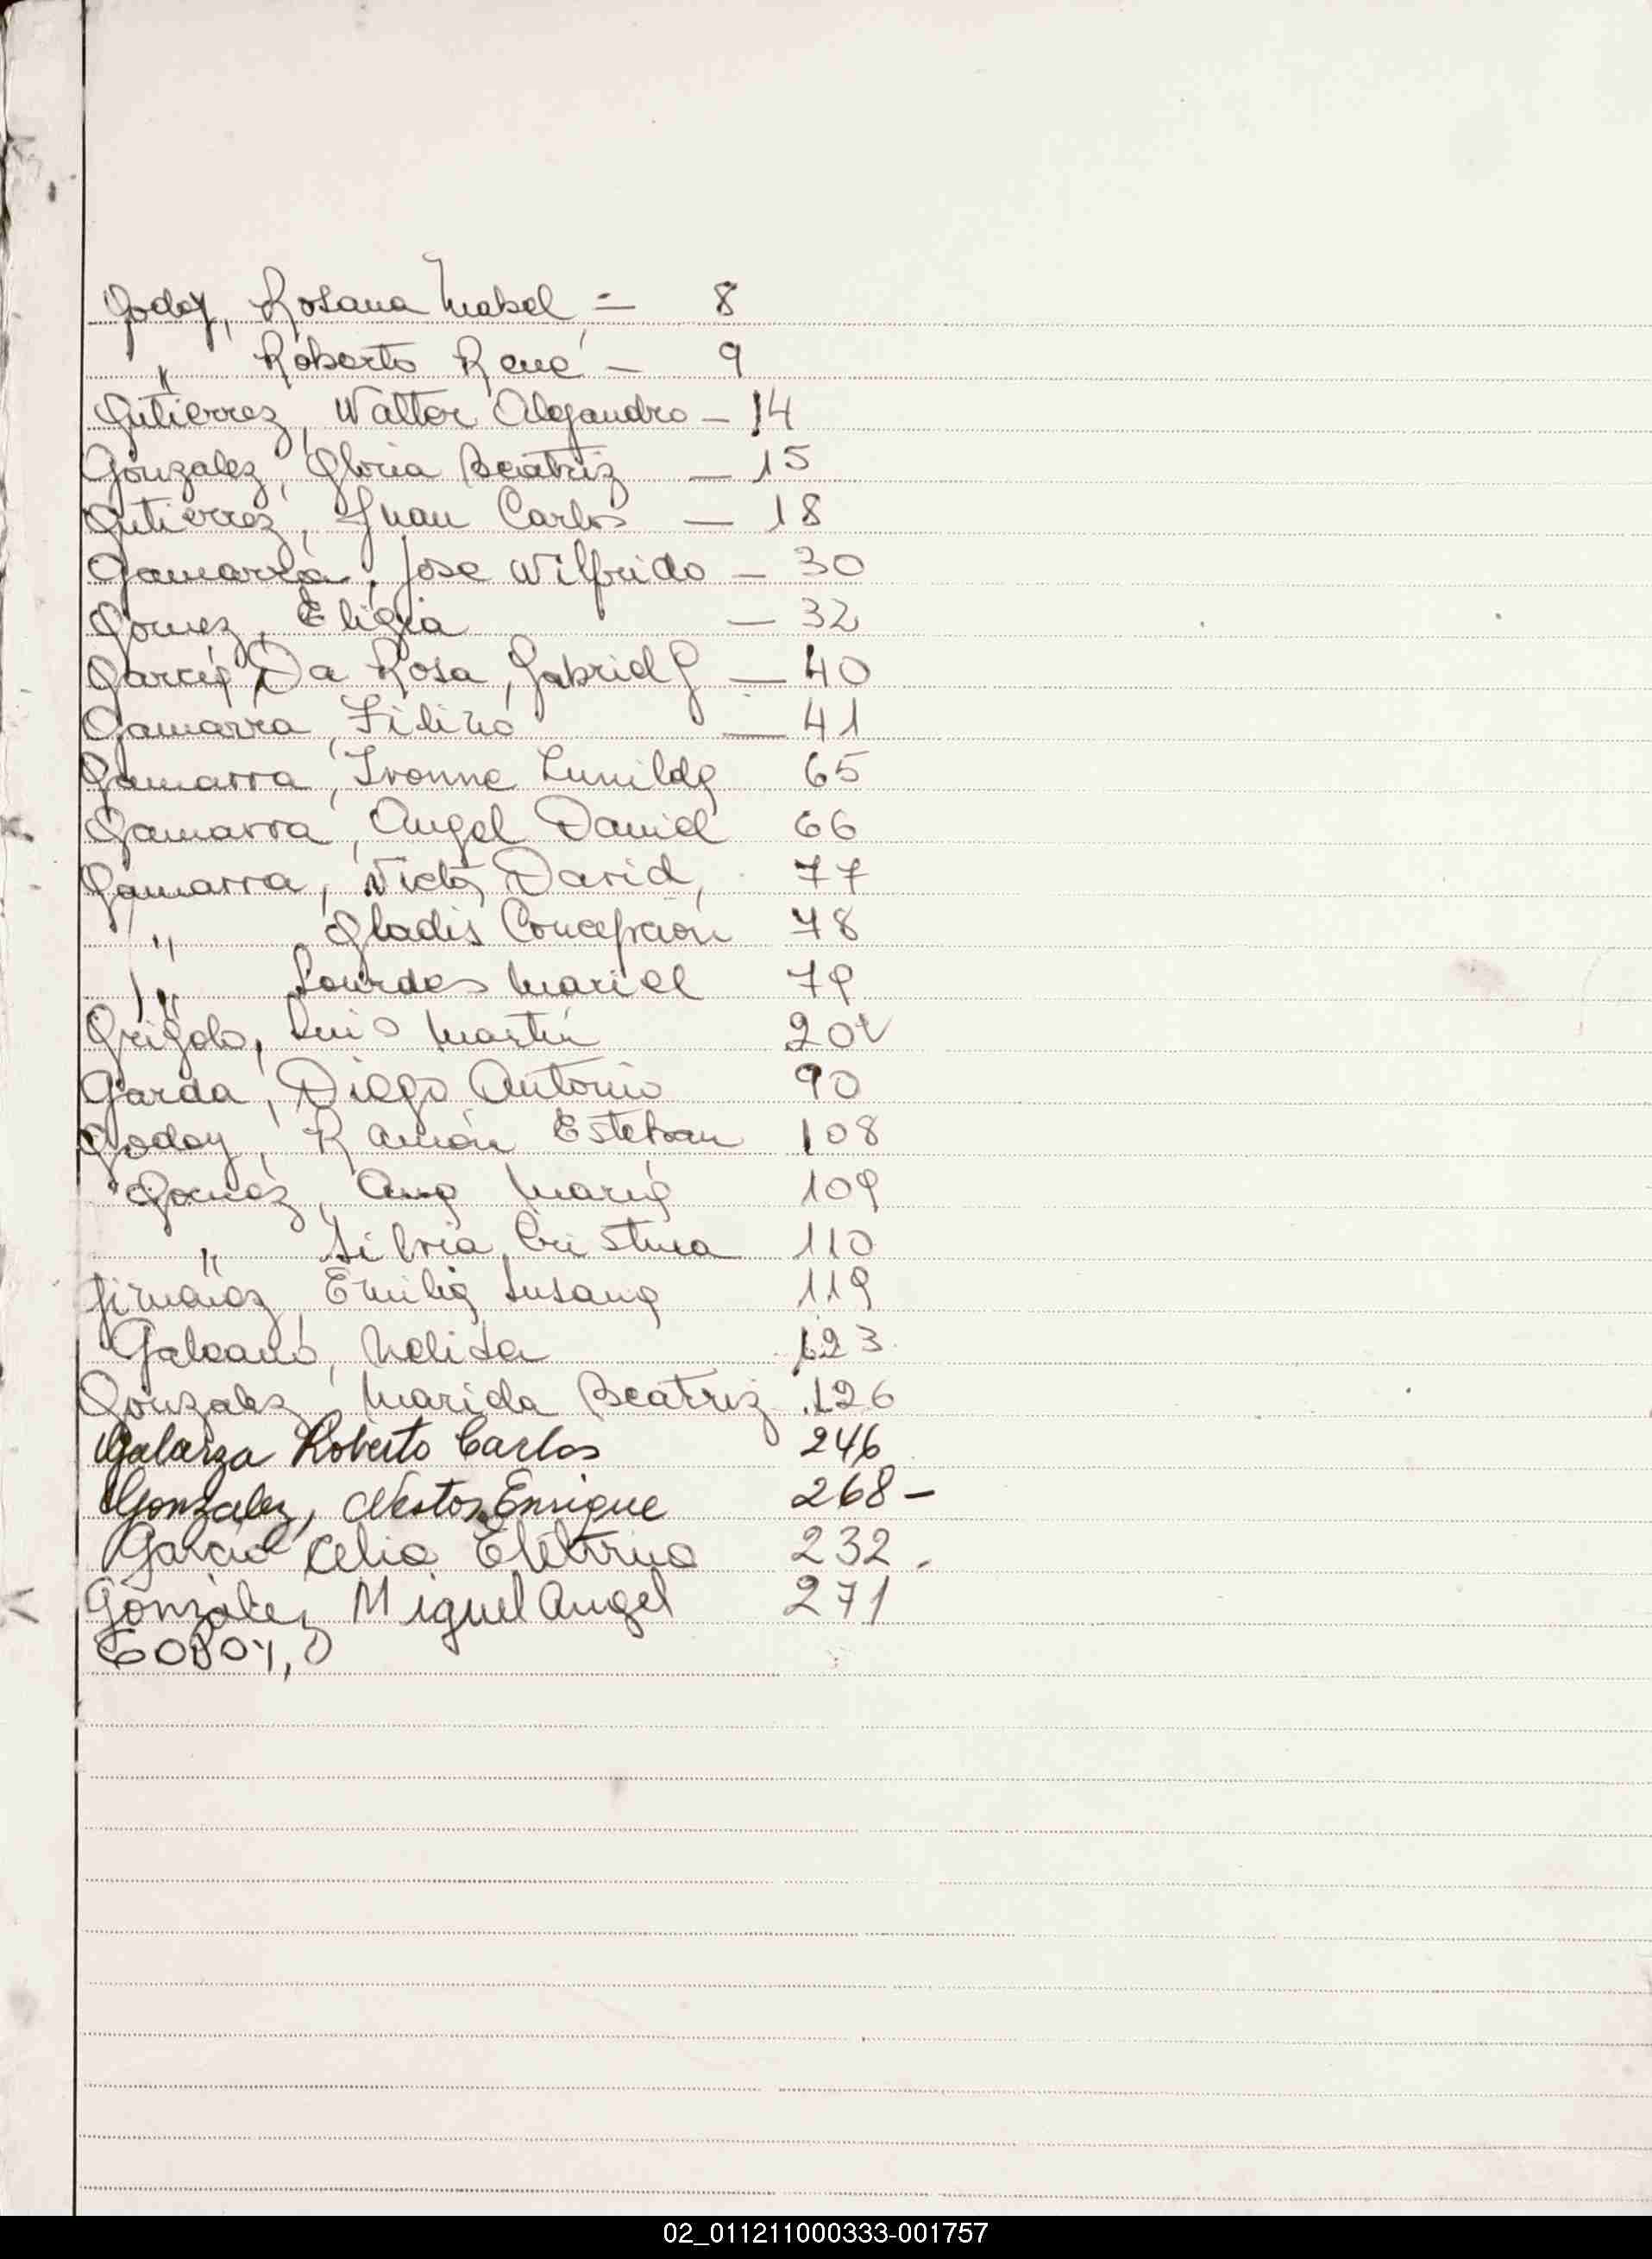 Godoy, Rosana Mabel = 8
" Roberto René - 9
Gutierrez, Walter Alejandro - 14
Gonzalez, Gloria Beatriz - 15
Gutierrez, Juan Carlos - 18
Gamarra, Jose Wilfrido - 30
Gomez, Eligia - 32
Garcia Da Rosa, Gabriel G - 40
Gamarra, - 41
Gamarra, Ivonne Lunilda 65
Gamarra, Angel Daniel 66
Gamarra, Victor David, 77
" Gladis Concepción 78
" Lourdes Mariel 79
Grigolo, Luis Martín 20
Garda, Diego Antonio 90
Godoy, Ramón Esteban 108
Gomez, Ana María 109
" Silvia Cristina 110
Gimenez, Emilia Susana 119
Galeano, Nelida 123
Gonzalez, Marida Beatriz 126
Galarza Roberto Carlos 246
Gonzalez, Nestor Enrique 268-
Garcia Celia 232.
Gonzalez Miguel Angel 271
GODOY,
02_011211000333-001757